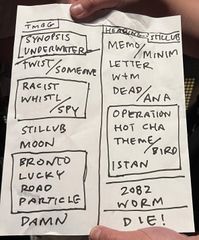 TMBG
SYNOPSIS
UNDERWATER
TWIST/
SOMEONE
RACIST
WHISTL/
SPY
STILLUB
MOON
BRONTO
LUCKY
ROAD
PARTICLE
DAMN
HEADLINE STILLUB
MEMO/
MINIM
LETTER
W+M
DEAD/
ANA
OPERATION
HOT CHA
THEME/
BIRD
ISTAN
2082
WORM
DIE!